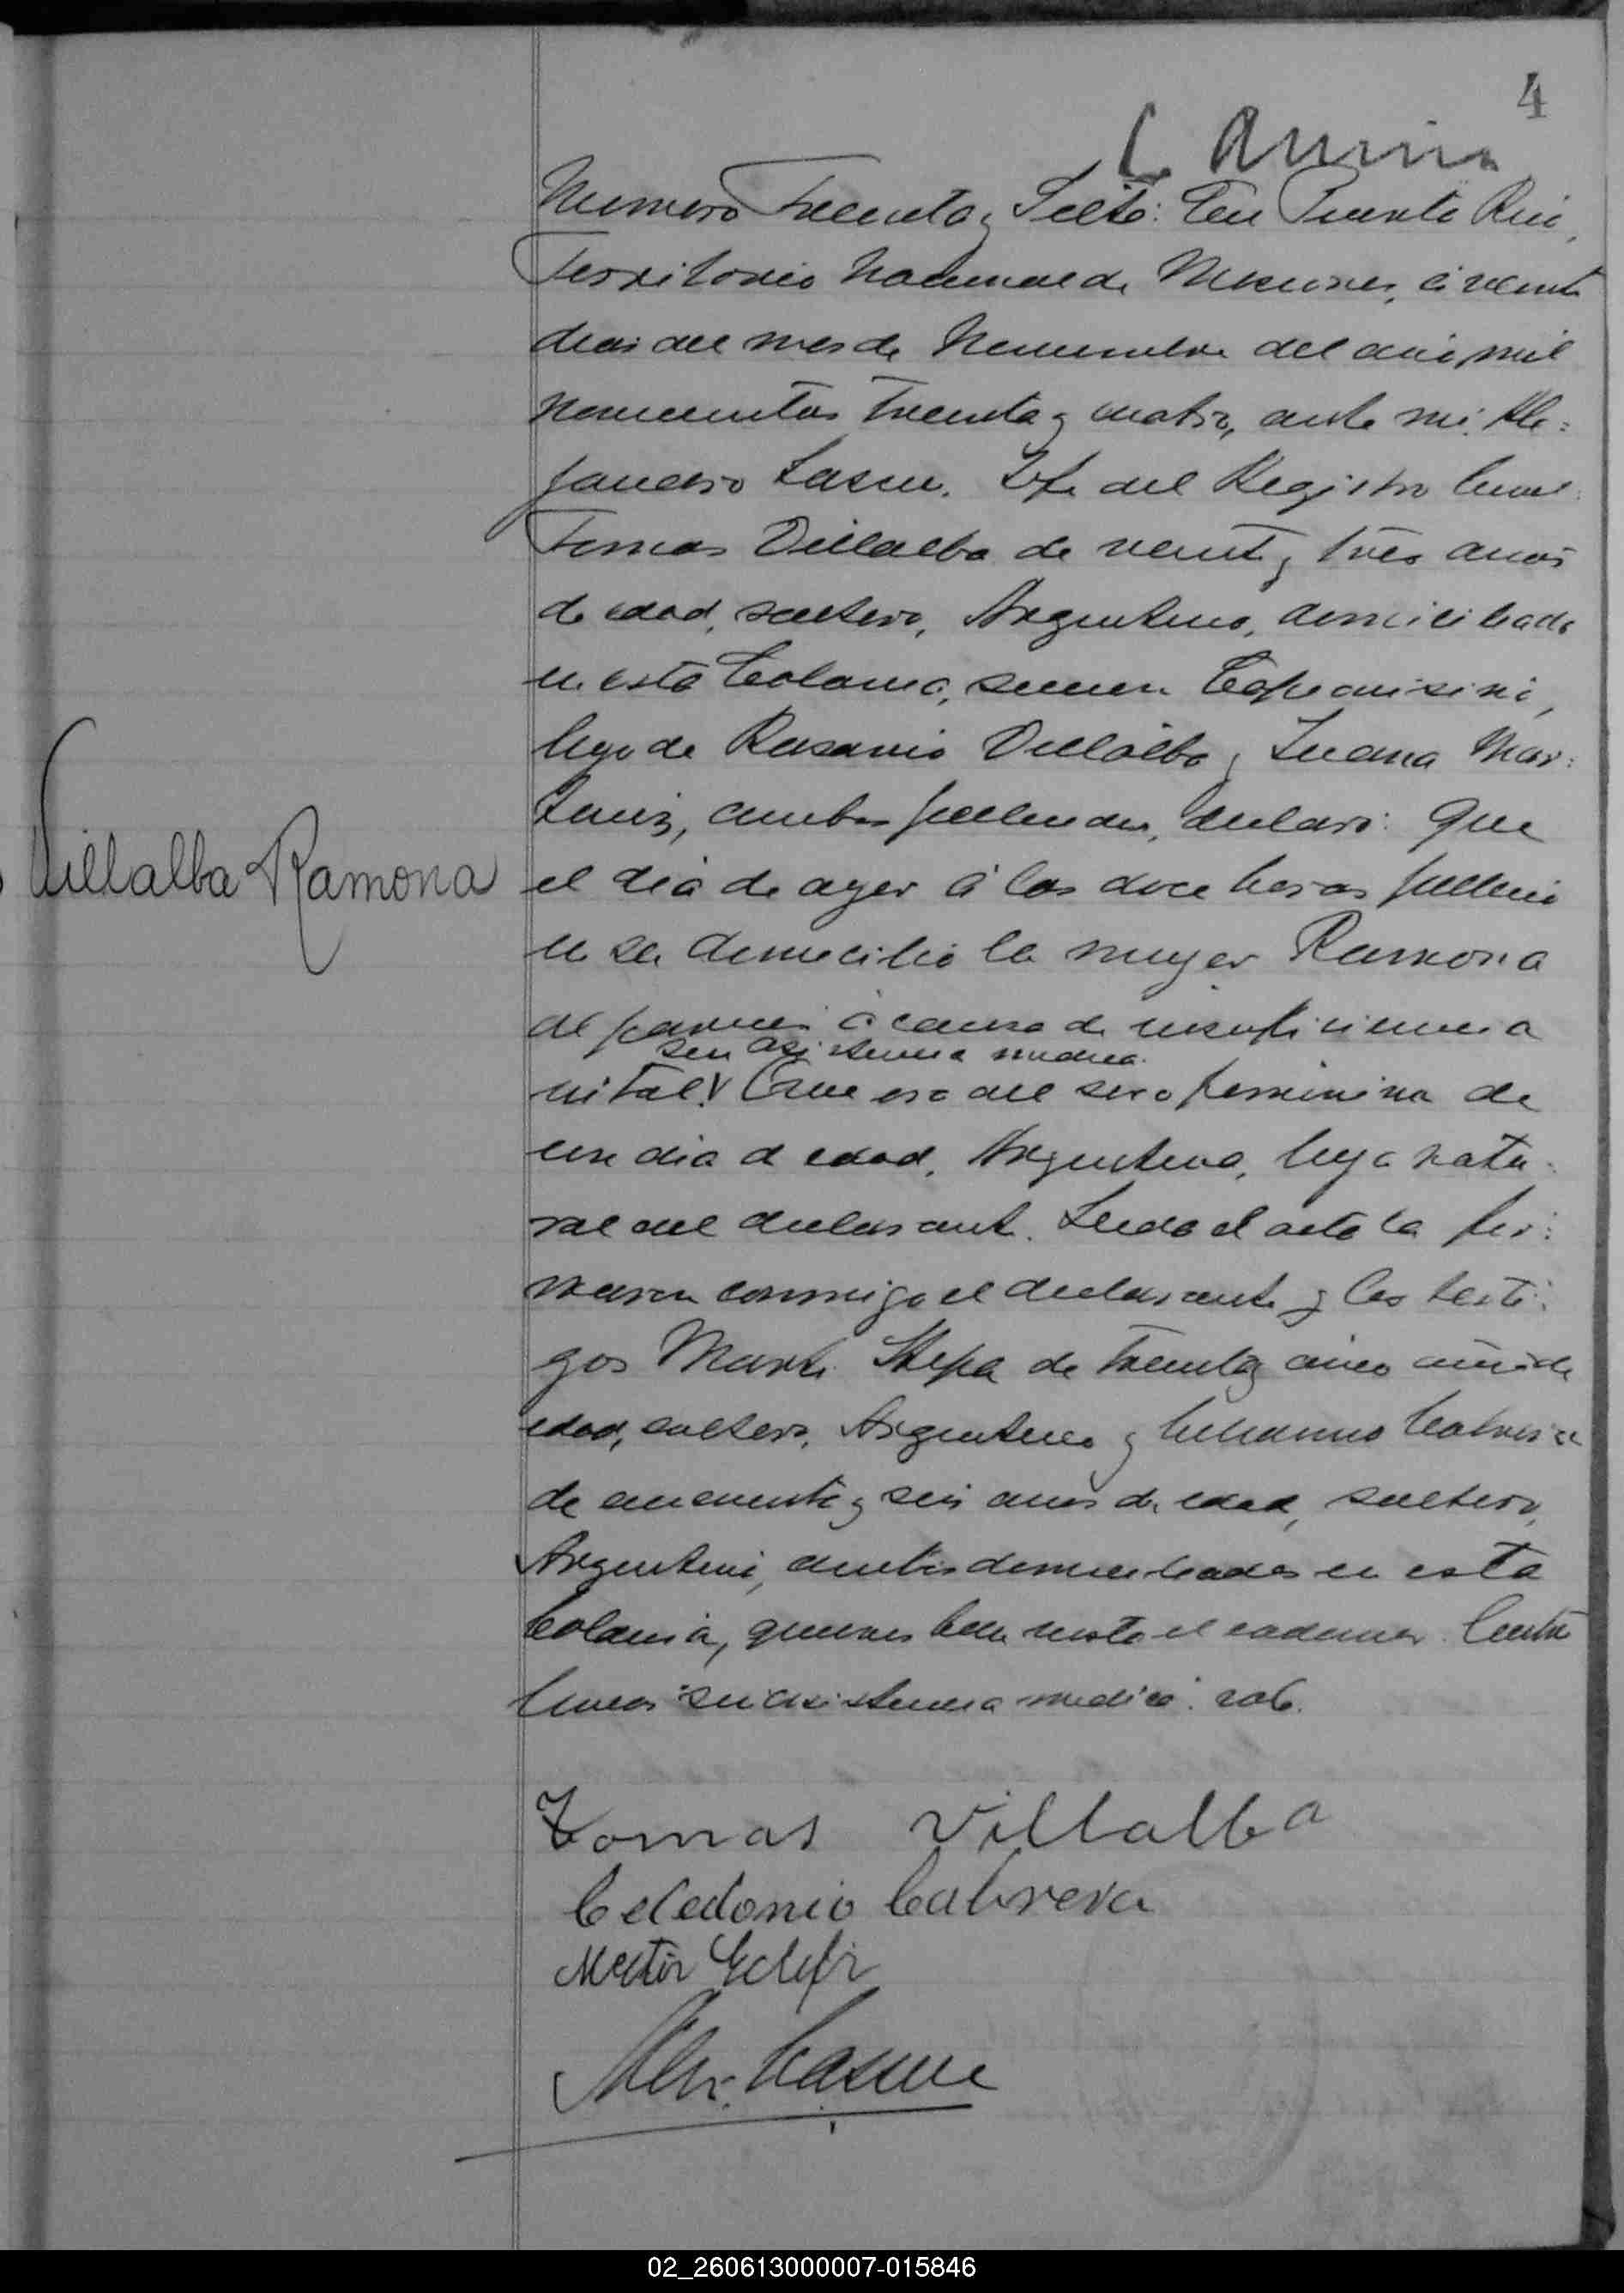 4
Numero Treinta y Siete: En Puerto Rico,
Territorio Nacional de Misiones, á veinte
dias del mes de Noviembre del año mil
novecientos treinta y cuatro, ante mi. Ale=
jandro Jefe del Registro Civil
Tomas Villalba de veinte y tres años
de edad, soltero, Argentino, domiciliado
en esta Colonia,
hijo de Rosario Villalba y Juana Mar=
tinez, ambos fallecidos, declaró: Que
Villalba Ramona
el dia de ayer á las doce horas falleció
en su domicilio la mujer Ramona
á causa de insuficiencia
sin asistencia medica.
vital. Que era del sexo feminina de
un dia de edad, Argentina, hija natu=
ral del declarante. Leida el acta la fir=
maron conmigo el declarante y los testi=
gos de treinta y cinco años de
edad, soltero, Argentino y Cabrera
de cincuenta y seis años de edad, soltero,
Argentino, ambos domiciliados en esta
Colonia, quienes han visto el cadaver. Entre
lineas "sin asistencia medica". vale.
Tomas Villalba
Celedonio Cabrera
02_260613000007-015846